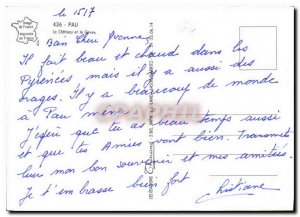 le 15/7
436 - PAU
Le Château et le Gave
Bien chère Yvonne
Il fait beau et chaud dans les
Pyrénées, mais il y a aussi des
orages. Il y a beaucoup de monde
à Pau même.
J'espère que tu as beau temps aussi
et que tu Amies vont bien. Transmets
leur mon bon souvenir et mes amitiés.
Je t'embrasse bien fort
Christiane